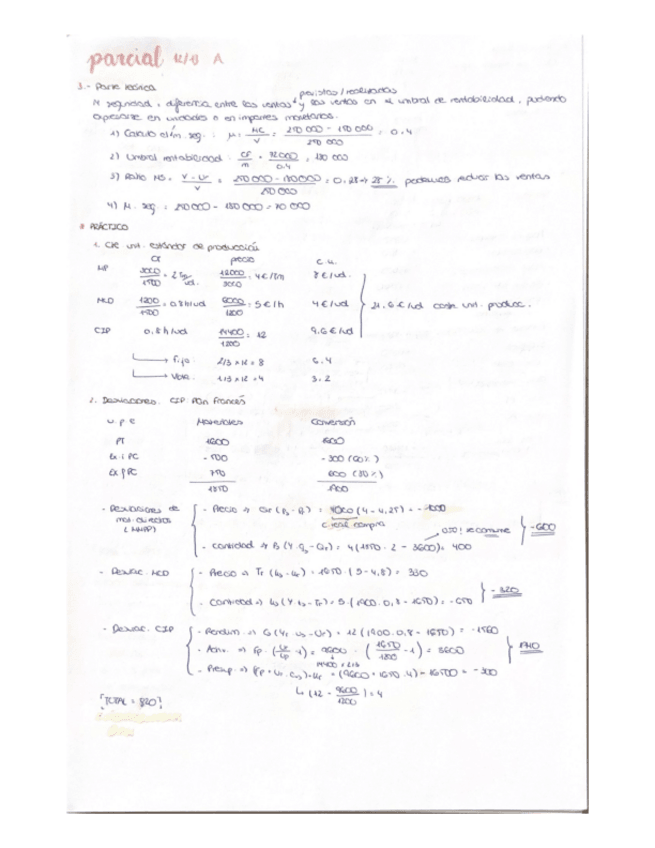 parcial 12/13 A
3.- Parte teórica
M seguridad = diferencia entre las ventas previstas/realizadas y las ventas en el umbral de rentabilidad, pudiendo
expresarse en unidades o en importes monetarios.
1) Calculo m. seg. : μ = MC/V = 250 000 - 150 000 / 250 000 = 0.4
2) Umbral rentabilidad : CF/m = 72000/0.4 = 180 000
3) Ratio MS = V - Ur / V = 250 000 - 180 000 / 250 000 = 0.28 → 28 % podemos reducir las ventas
4) M. seg. = 250 000 - 180 000 = 70 000
PRÁCTICO
1. Cte unit. estándar de producción
precio c.u.
MP 3000/1500 = 2 12000/3000 = 4 €/ 8 €/ud.
MOD 1200/1500 = 0.8 h/ud 6000/1200 = 5 €/h 4 €/ud 21.6 €/ud coste unit. produc.
CIP 0.8 h/ud 14400/1200 = 12 9.6 €/ud
→ Fija 2/3 x 12 = 8 6.4
→ Vble. 1/3 x 12 = 4 3.2
2. Desviaciones. CIP Plan Francés
u. p. e Materiales Conversión
PT 1600 1600
Ex i PC - 500 - 300 (60%)
Ex f PC 750 600 (80%)
1850 1900
- Desviaciones de mat. directos (MMPP)
- Precio → Qr (Ps - Pr) = 4000 (4 - 4,25) = -1000
c. real compra
0J0! se consume
- Cantidad → Ps (Y. qs - Qr) = 4 (1850 . 2 - 3600) = 400
-600
- Desviac. MOD
- Precio → Tr (us - ur) = 1650 (5 - 4,8) = 330
- Cantidad → us (Y. ts - Tr) = 5 . (1900. 0,8 - 1650) = -650
- 320
- Desviac. CIP
- Rendim. → G (Yr us - Ur) = 12 (1900. 0,8 - 1650) = -1560
- Activ. → Fp . (Ur/Up - 1) = 9600 . (1650/1200 - 1) = 3600
14400 x 2/3
- Presup. → (Fp + Ur . Cvs) - Gr = (9600 + 1650 . 4) - 16500 = -300
1740
↳ (12 - 9600/1200) = 4
[TOTAL = 820]